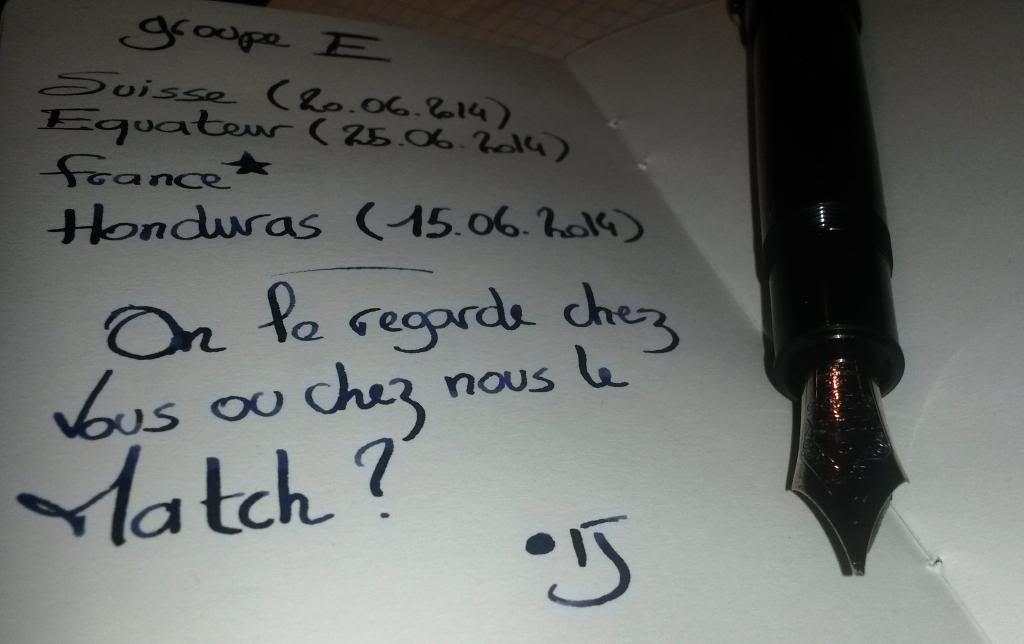 groupe E
Suisse (20.06.2014)
Equateur (25.06.2014)
france★
Honduras (15.06.2014)
On le regarde chez
Vous ou chez nous le
Match ?